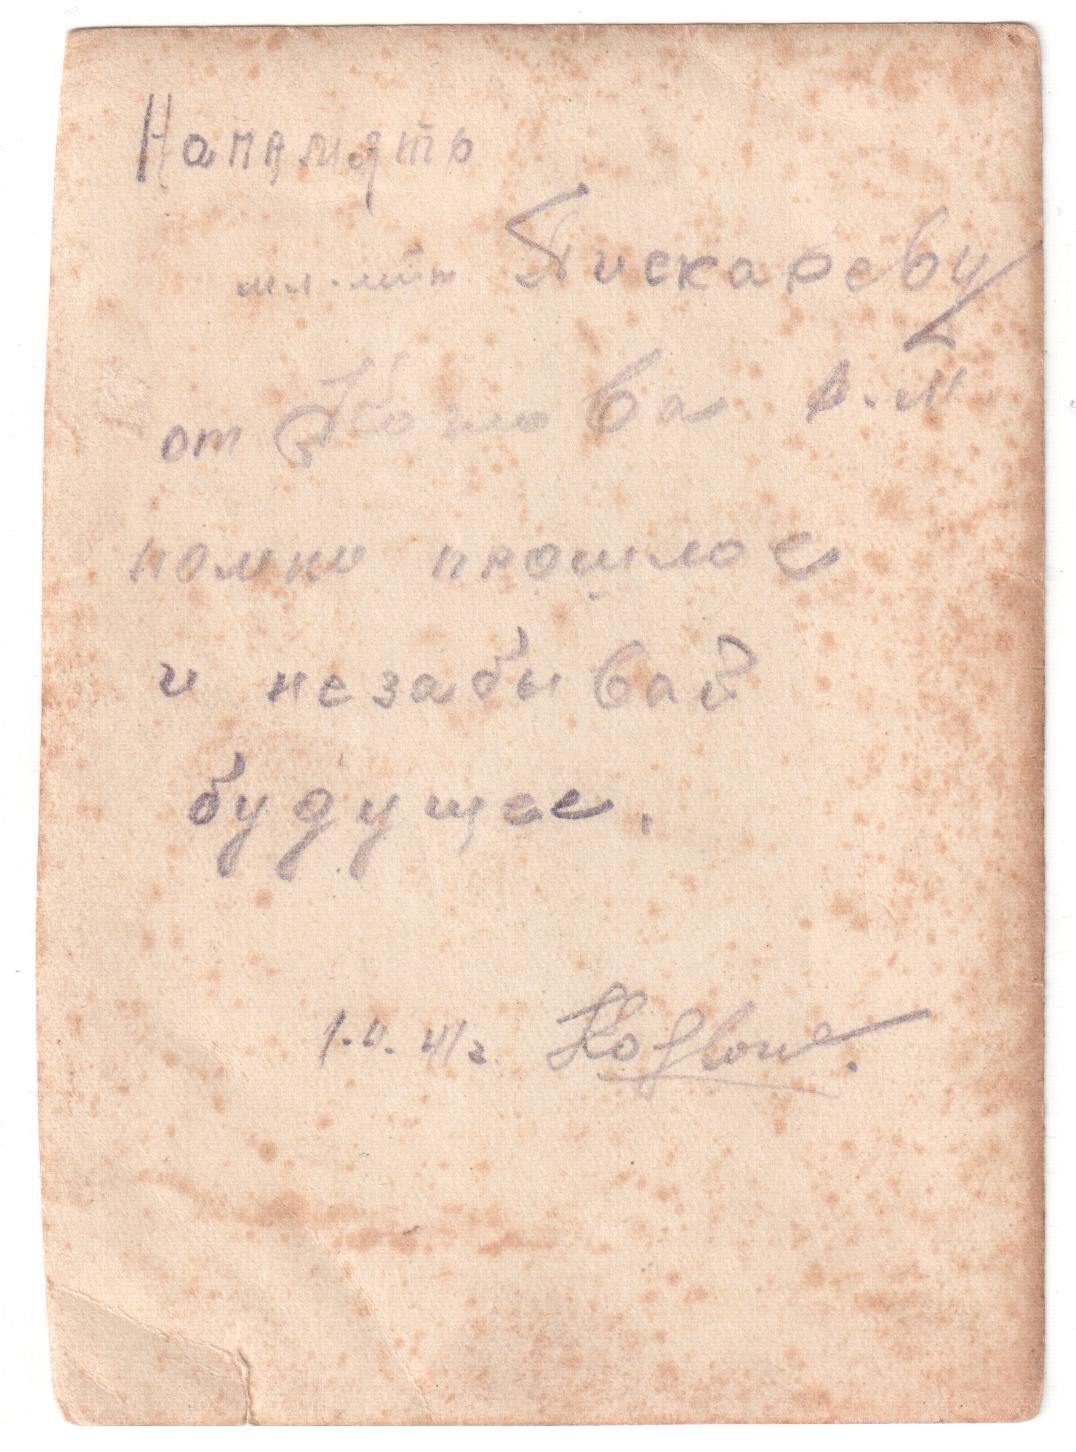 Напамять
мл. лейт. Пискареву
от Козлова А. М.
помни прошлое
и незабывай
будущее.
1.V. 41г. Козлов.